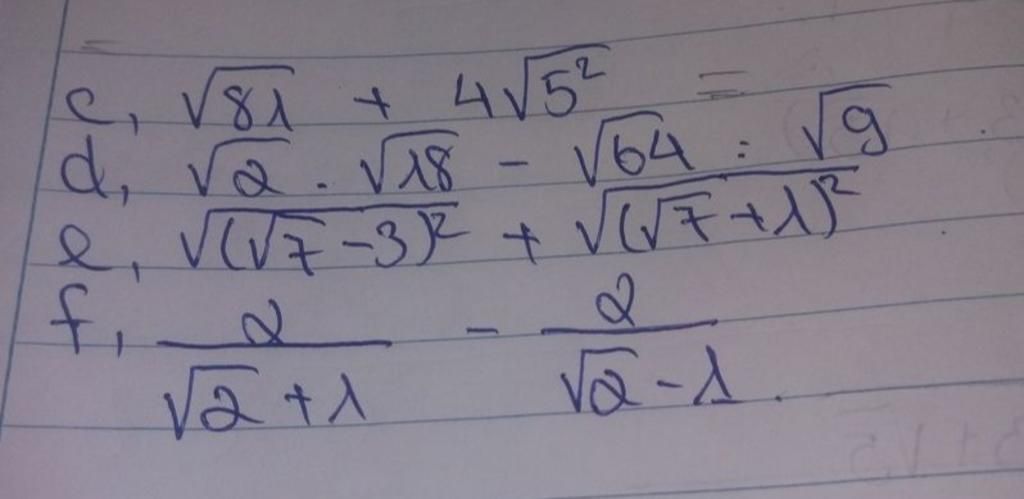 c, √81 + 4√5² =
d, √2 . √18 - √64 : √9
e, √(√7 - 3)² + √(√7 + 1)²
f, 2/(√2 + 1) - 2/(√2 - 1).